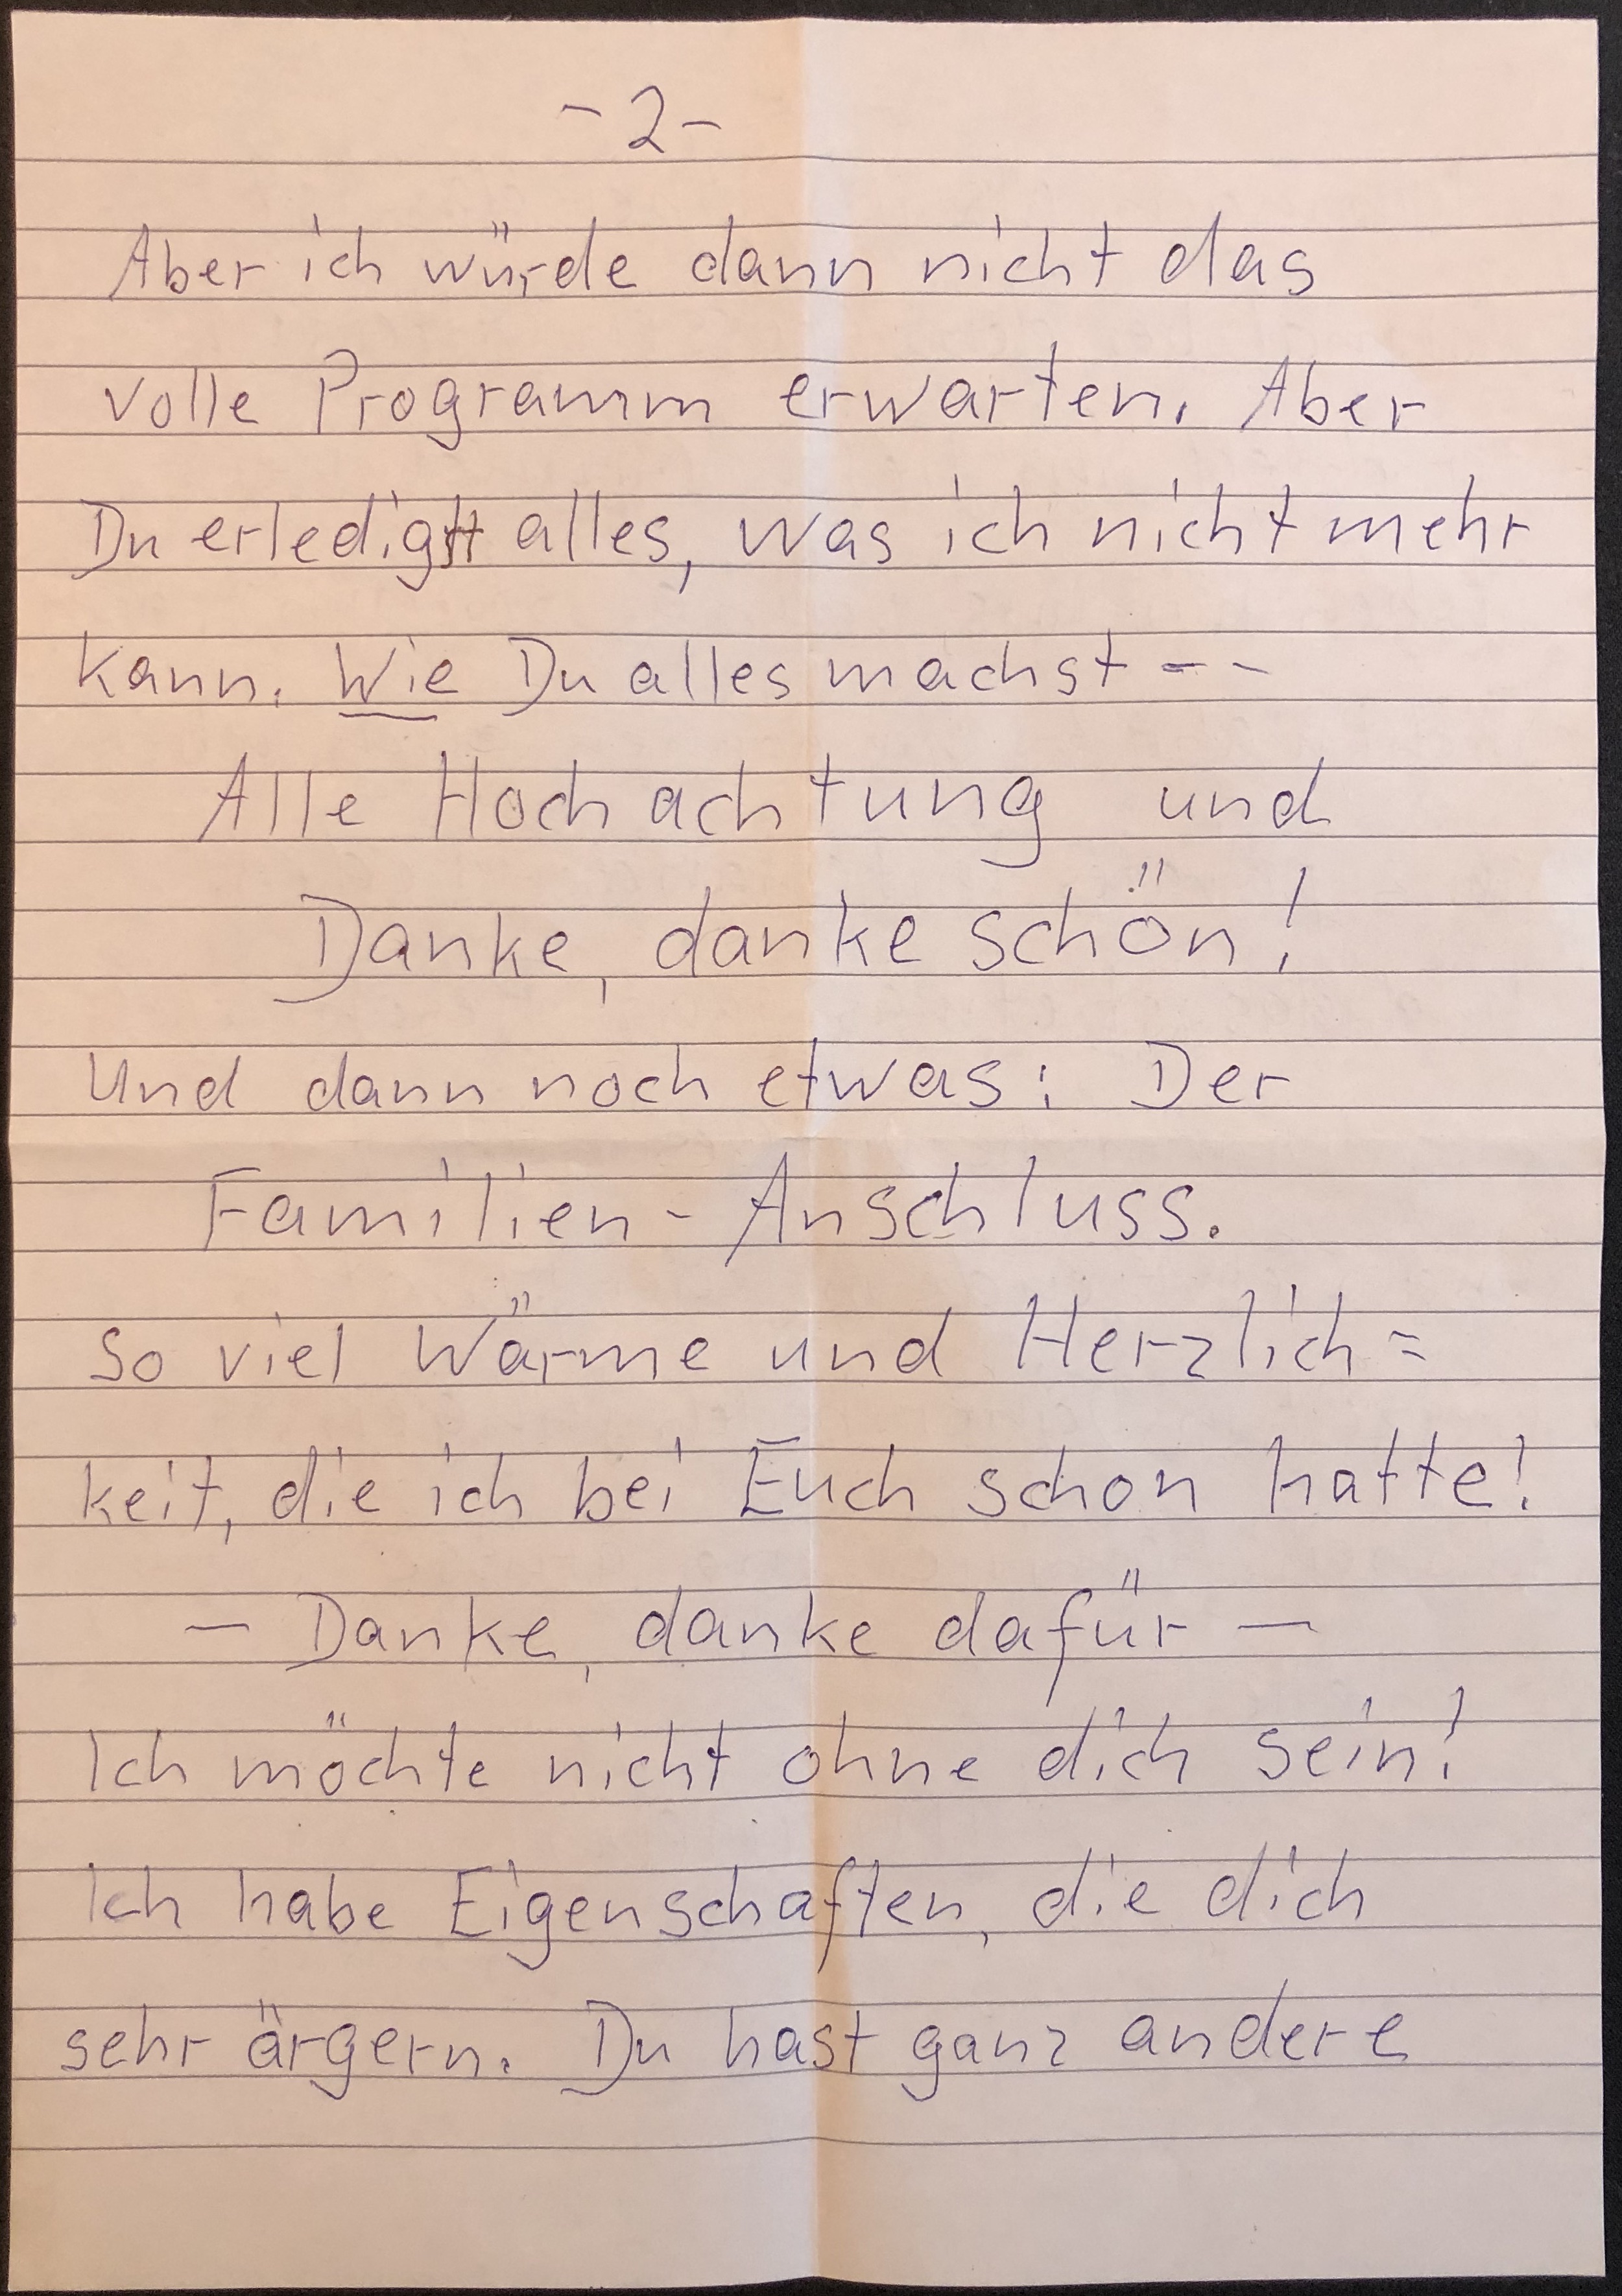 - 2 -
Aber ich würde dann nicht das
volle Programm erwarten. Aber
Du erledigst alles, was ich nicht mehr
kann. Wie Du alles machst - -
Alle Hochachtung und
Danke, danke schön!
Und dann noch etwas: Der
Familien - Anschluss.
So viel Wärme und Herzlich=
keit, die ich bei Euch schon hatte!
— Danke, danke dafür —
Ich möchte nicht ohne dich sein!
Ich habe Eigenschaften, die dich
sehr ärgern. Du hast ganz andere